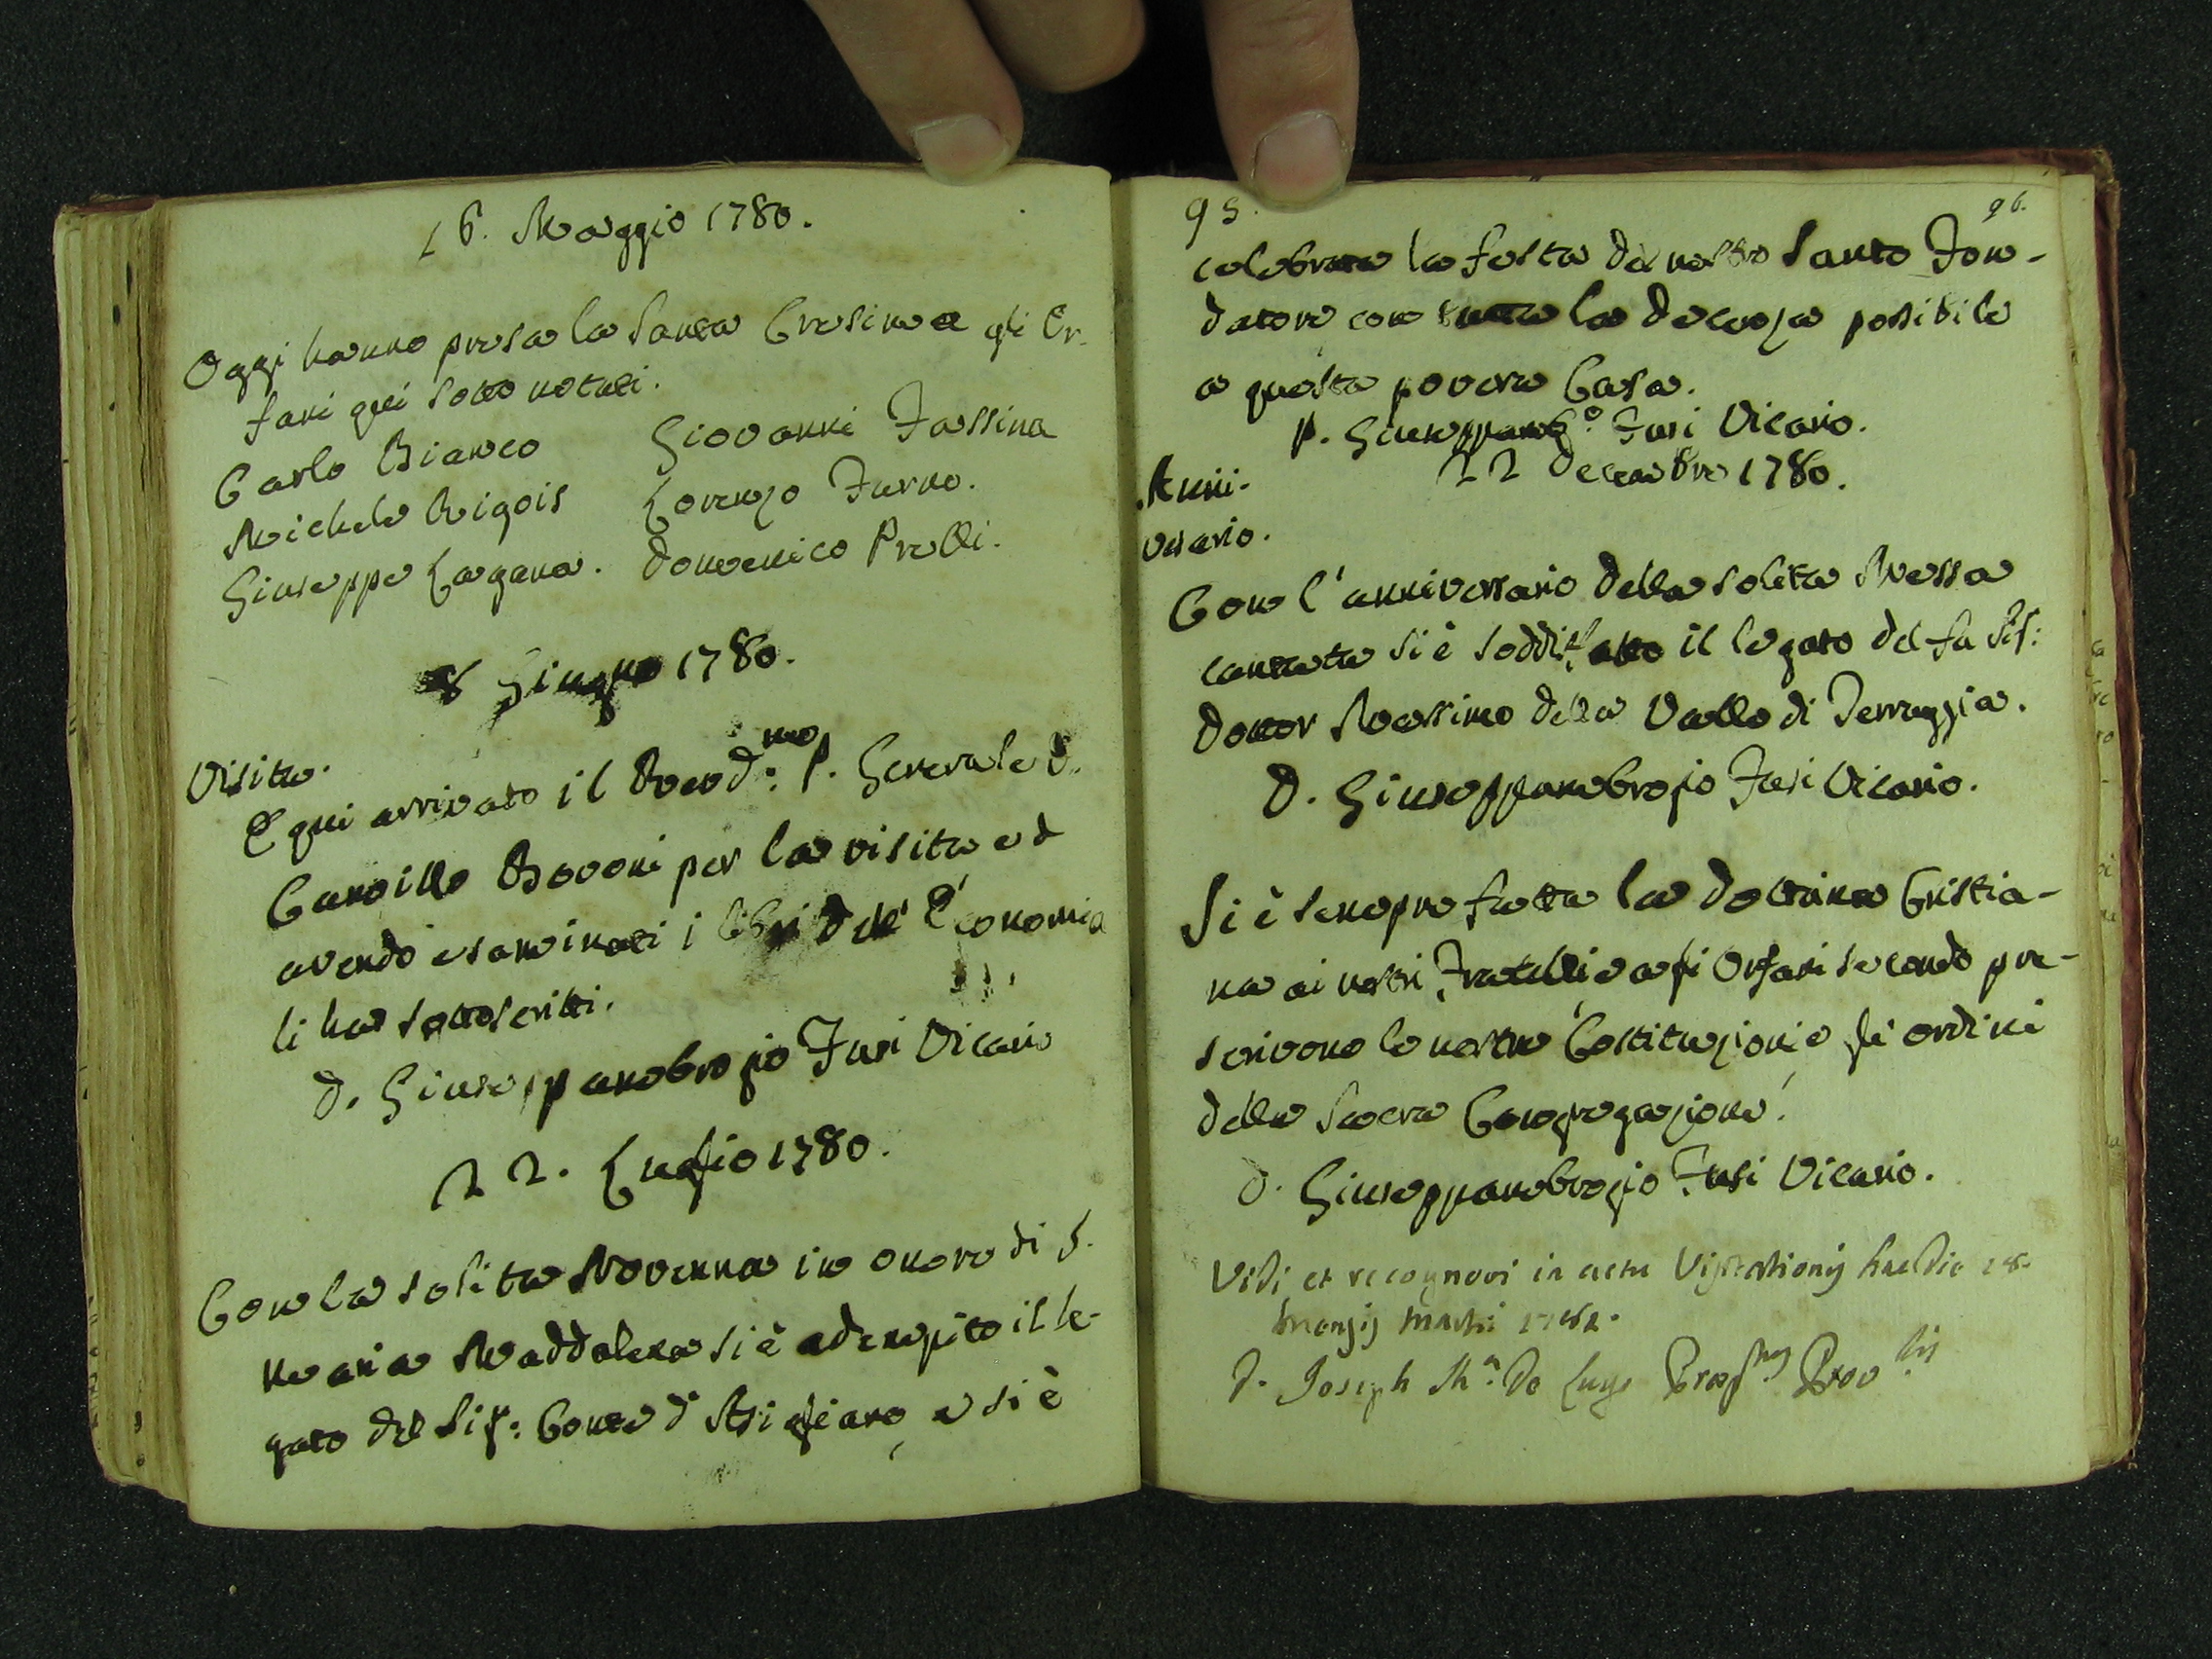 16. Maggio 1780.
Oggi hanno presa la Santa Cresima gli Or-
fani qui sotto notati.
Carlo Bianco Giovanni Fassina
Michele Rigois Lorenzo Furno.
Giuseppe Lagana. Domenico Prelli.
8 Giugno 1780.
Visita.
È qui arrivato il Revd:mo P. Generale D.
Camillo Bovoni per la visita ed
avendo esaminati i libri dell' Economia
li ha sottoscritti.
D. Giuseppambrogio Fusi Vicario
22. Luglio 1780.
Con la solita Novenna in onore di S.
Maria Maddalena si è adempito il le-
gato del Sig: Conte d' Asigliano, e si è
95. 96.
celebrata la festa del nostro Santo Fon-
datore con tutta la decenza possibile
a questa povera Casa.
P. Giuseppamb.o Fusi Vicario.
22 Decembre 1780.
Anni-
versario.
Con l'anniversario della solita Messa
cantata si è soddisfatto il legato del fu Sig:
Dottor Massimo della Valle di Terruggia.
D. Giuseppambrogio Fusi Vicario.
Si è sempre fatta la dottrina Cristia-
na ai nostri Fratelli e agli Orfani secondo pre-
scrivono le nostre Costituzioni e gli ordini
della Sacra Congregazione.
D. Giuseppambrogio Fusi Vicario.
Vidi et recognovi in actu Visitationis hac die 28.
mensis Martii
D. Joseph M.a De Lugo Præp.tus Prov.lis